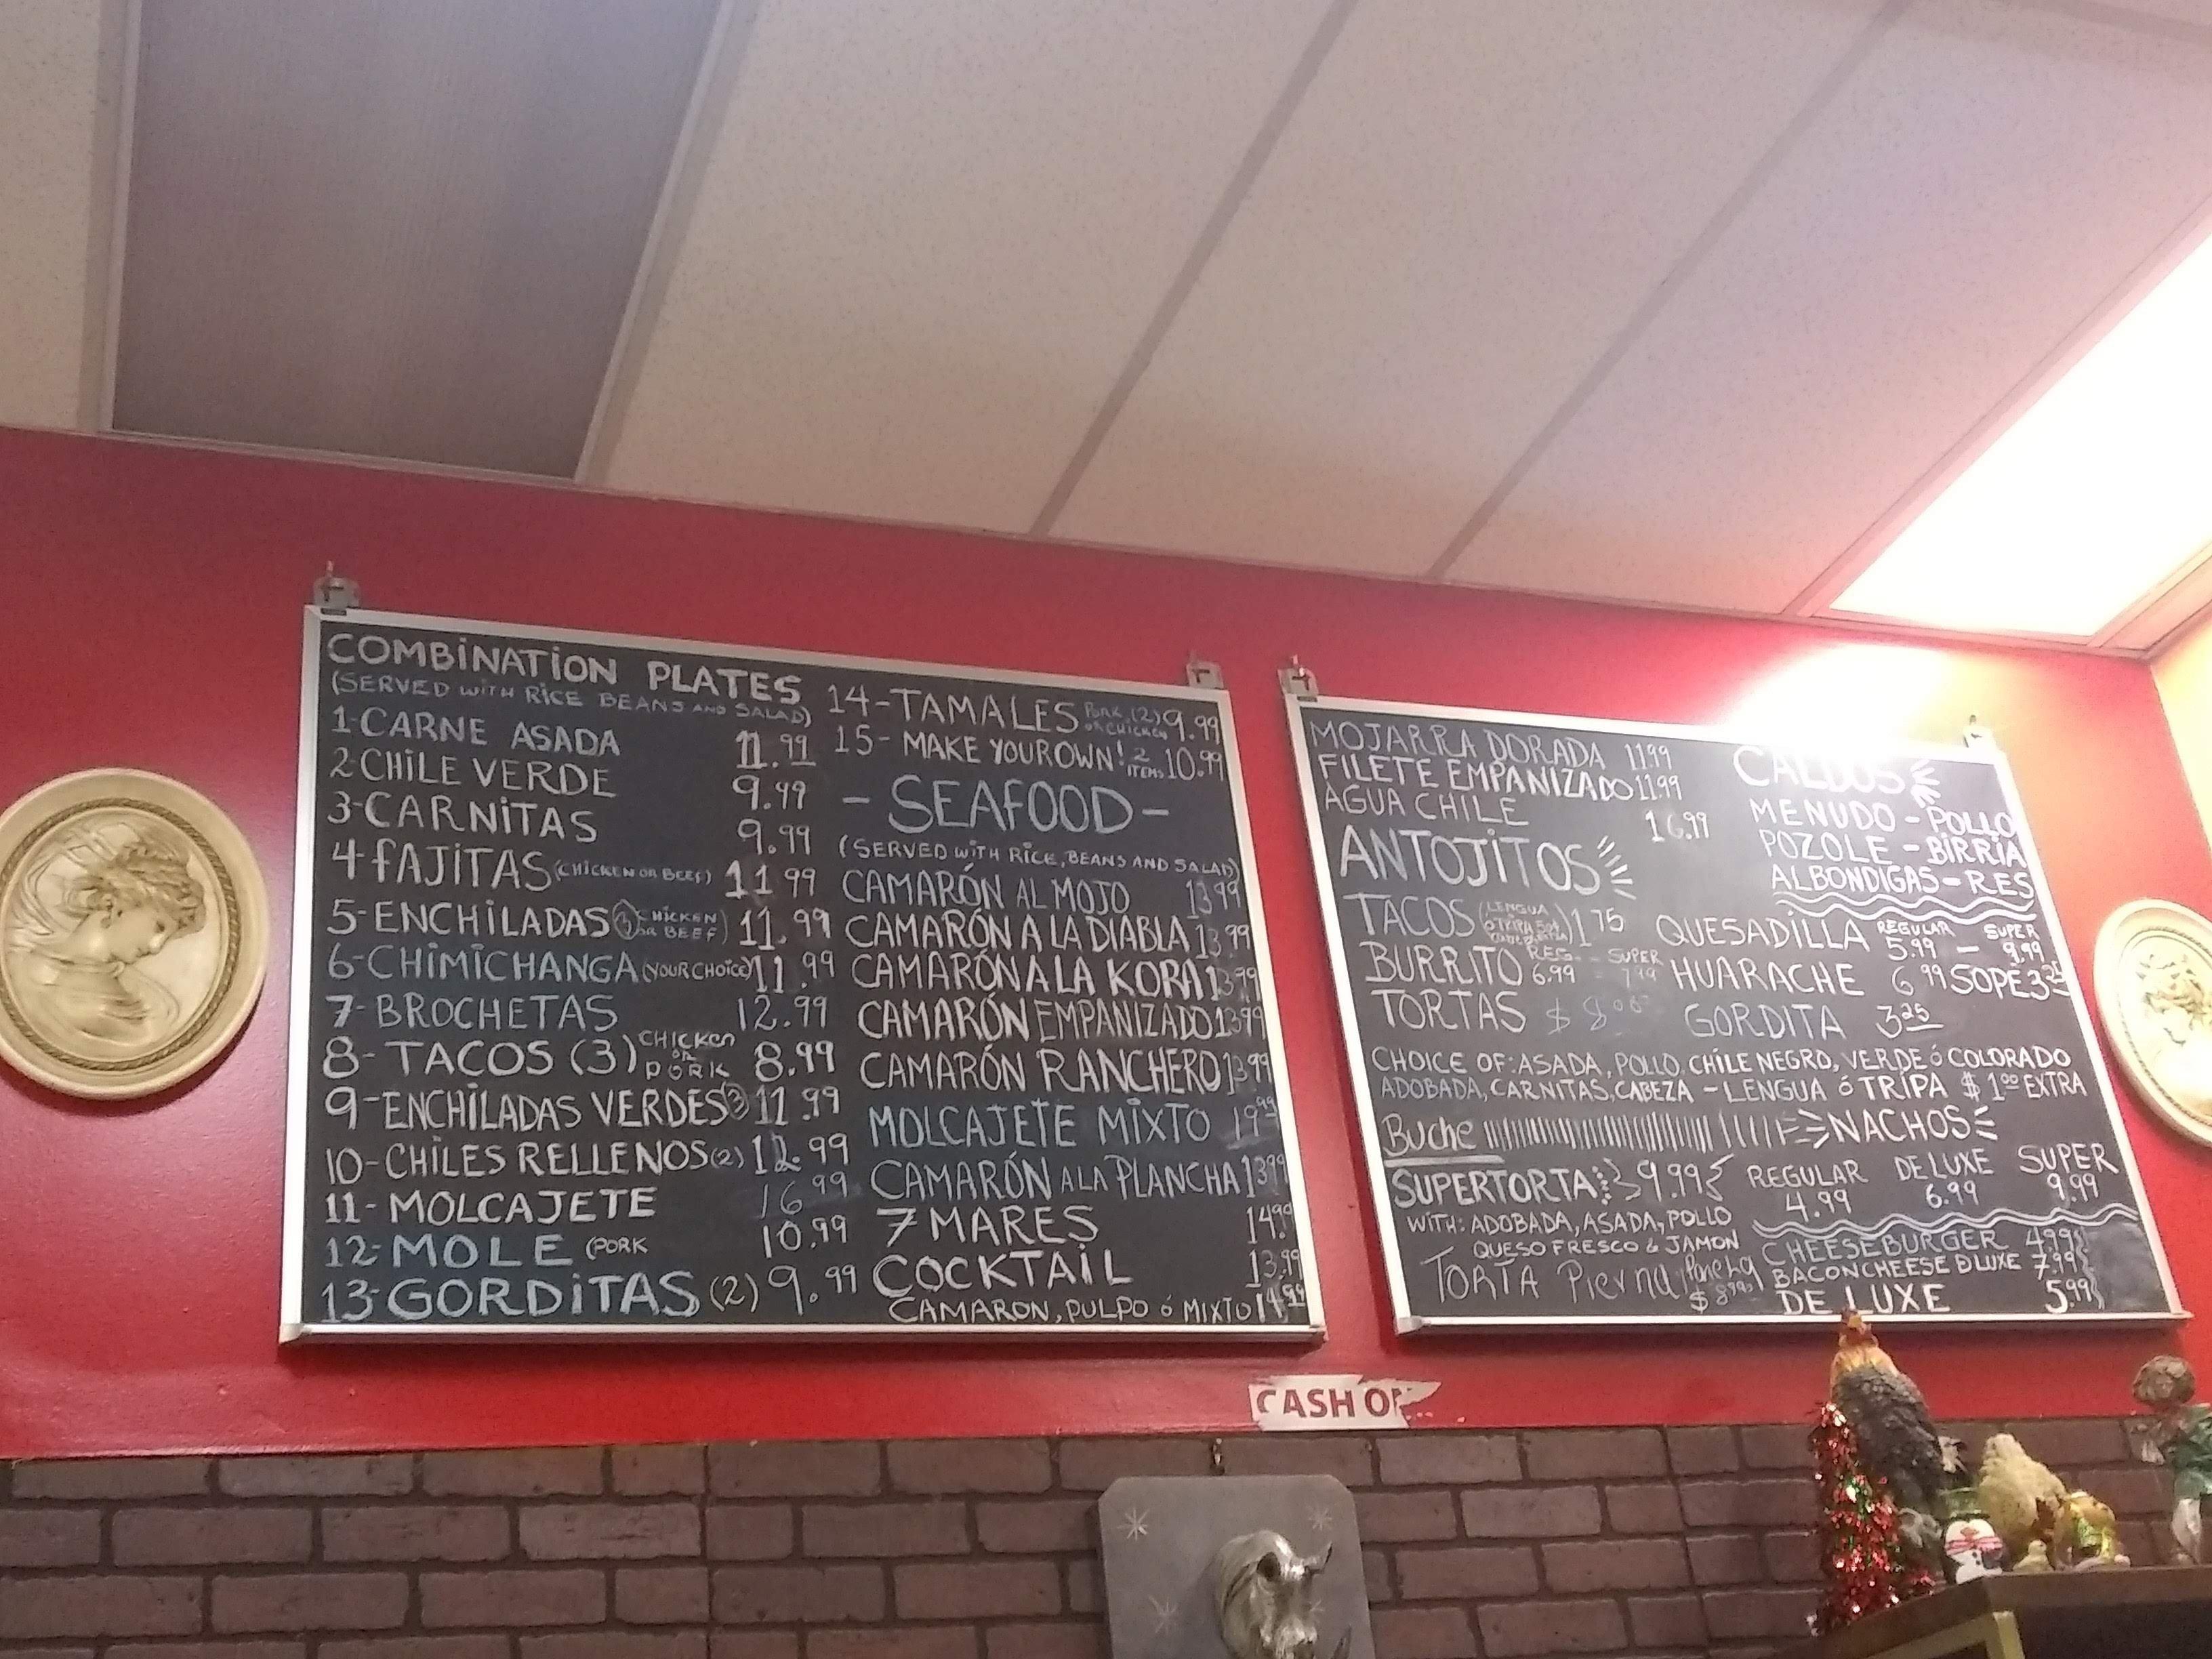 COMBINATION PLATES
(SERVED WITH RICE BEANS AND SALAD)
1-CARNE ASADA 11.99
2-CHILE VERDE 9.99
3-CARNITAS 9.99
4-FAJITAS (CHICKEN OR BEEF) 11.99
5-ENCHILADAS (3) CHICKEN OR BEEF) 11.99
6-CHIMICHANGA (YOUR CHOICE) 11.99
7-BROCHETAS 12.99
8-TACOS (3) CHICKEN OR PORK 8.99
9-ENCHILADAS VERDES (3) 11.99
10-CHILES RELLENOS (2) 12.99
11-MOLCAJETE 16.99
12-MOLE (PORK 10.99
13-GORDITAS (2) 9.99
14-TAMALES PORK (2) OR CHICKEN 9.99
15-MAKE YOUR OWN! 2 ITEMS 10.99
-SEAFOOD-
(SERVED WITH RICE, BEANS AND SALAD)
CAMARÓN AL MOJO 13.99
CAMARÓN A LA DIABLA 13.99
CAMARÓN A LA KORA 13.99
CAMARÓN EMPANIZADO 13.99
CAMARÓN RANCHERO 13.99
MOLCAJETE MIXTO 19.99
CAMARÓN A LA PLANCHA 13.99
7 MARES 14.99
COCKTAIL 13.99
CAMARON, PULPO ó MIXTO 14.99
MOJARRA DORADA 11.99
FILETE EMPANIZADO 11.99
AGUA CHILE 16.99
ANTOJITOS
TACOS (LENGUA ó TRIPA 1.75
BURRITO REG. 6.99 - SUPER 7.99
TORTAS $8
CALDOS
MENUDO - POLLO
POZOLE - BIRRIA
ALBONDIGAS - RES
QUESADILLA REGULAR 5.99 - SUPER 9.99
HUARACHE 6.99 SOPE 3.25
GORDITA 3.25
CHOICE OF: ASADA, POLLO, CHILE NEGRO, VERDE ó COLORADO
ADOBADA, CARNITAS, CABEZA - LENGUA ó TRIPA $1.00 EXTRA
Buche
SUPERTORTA 9.99
WITH: ADOBADA, ASADA, POLLO
QUESO FRESCO & JAMON
TORTA Pierna $8.99
NACHOS
REGULAR DELUXE SUPER
4.99 6.99 9.99
CHEESEBURGER 4.99
BACONCHEESE DLUXE 7.99
DE LUXE 5.99
CASH O